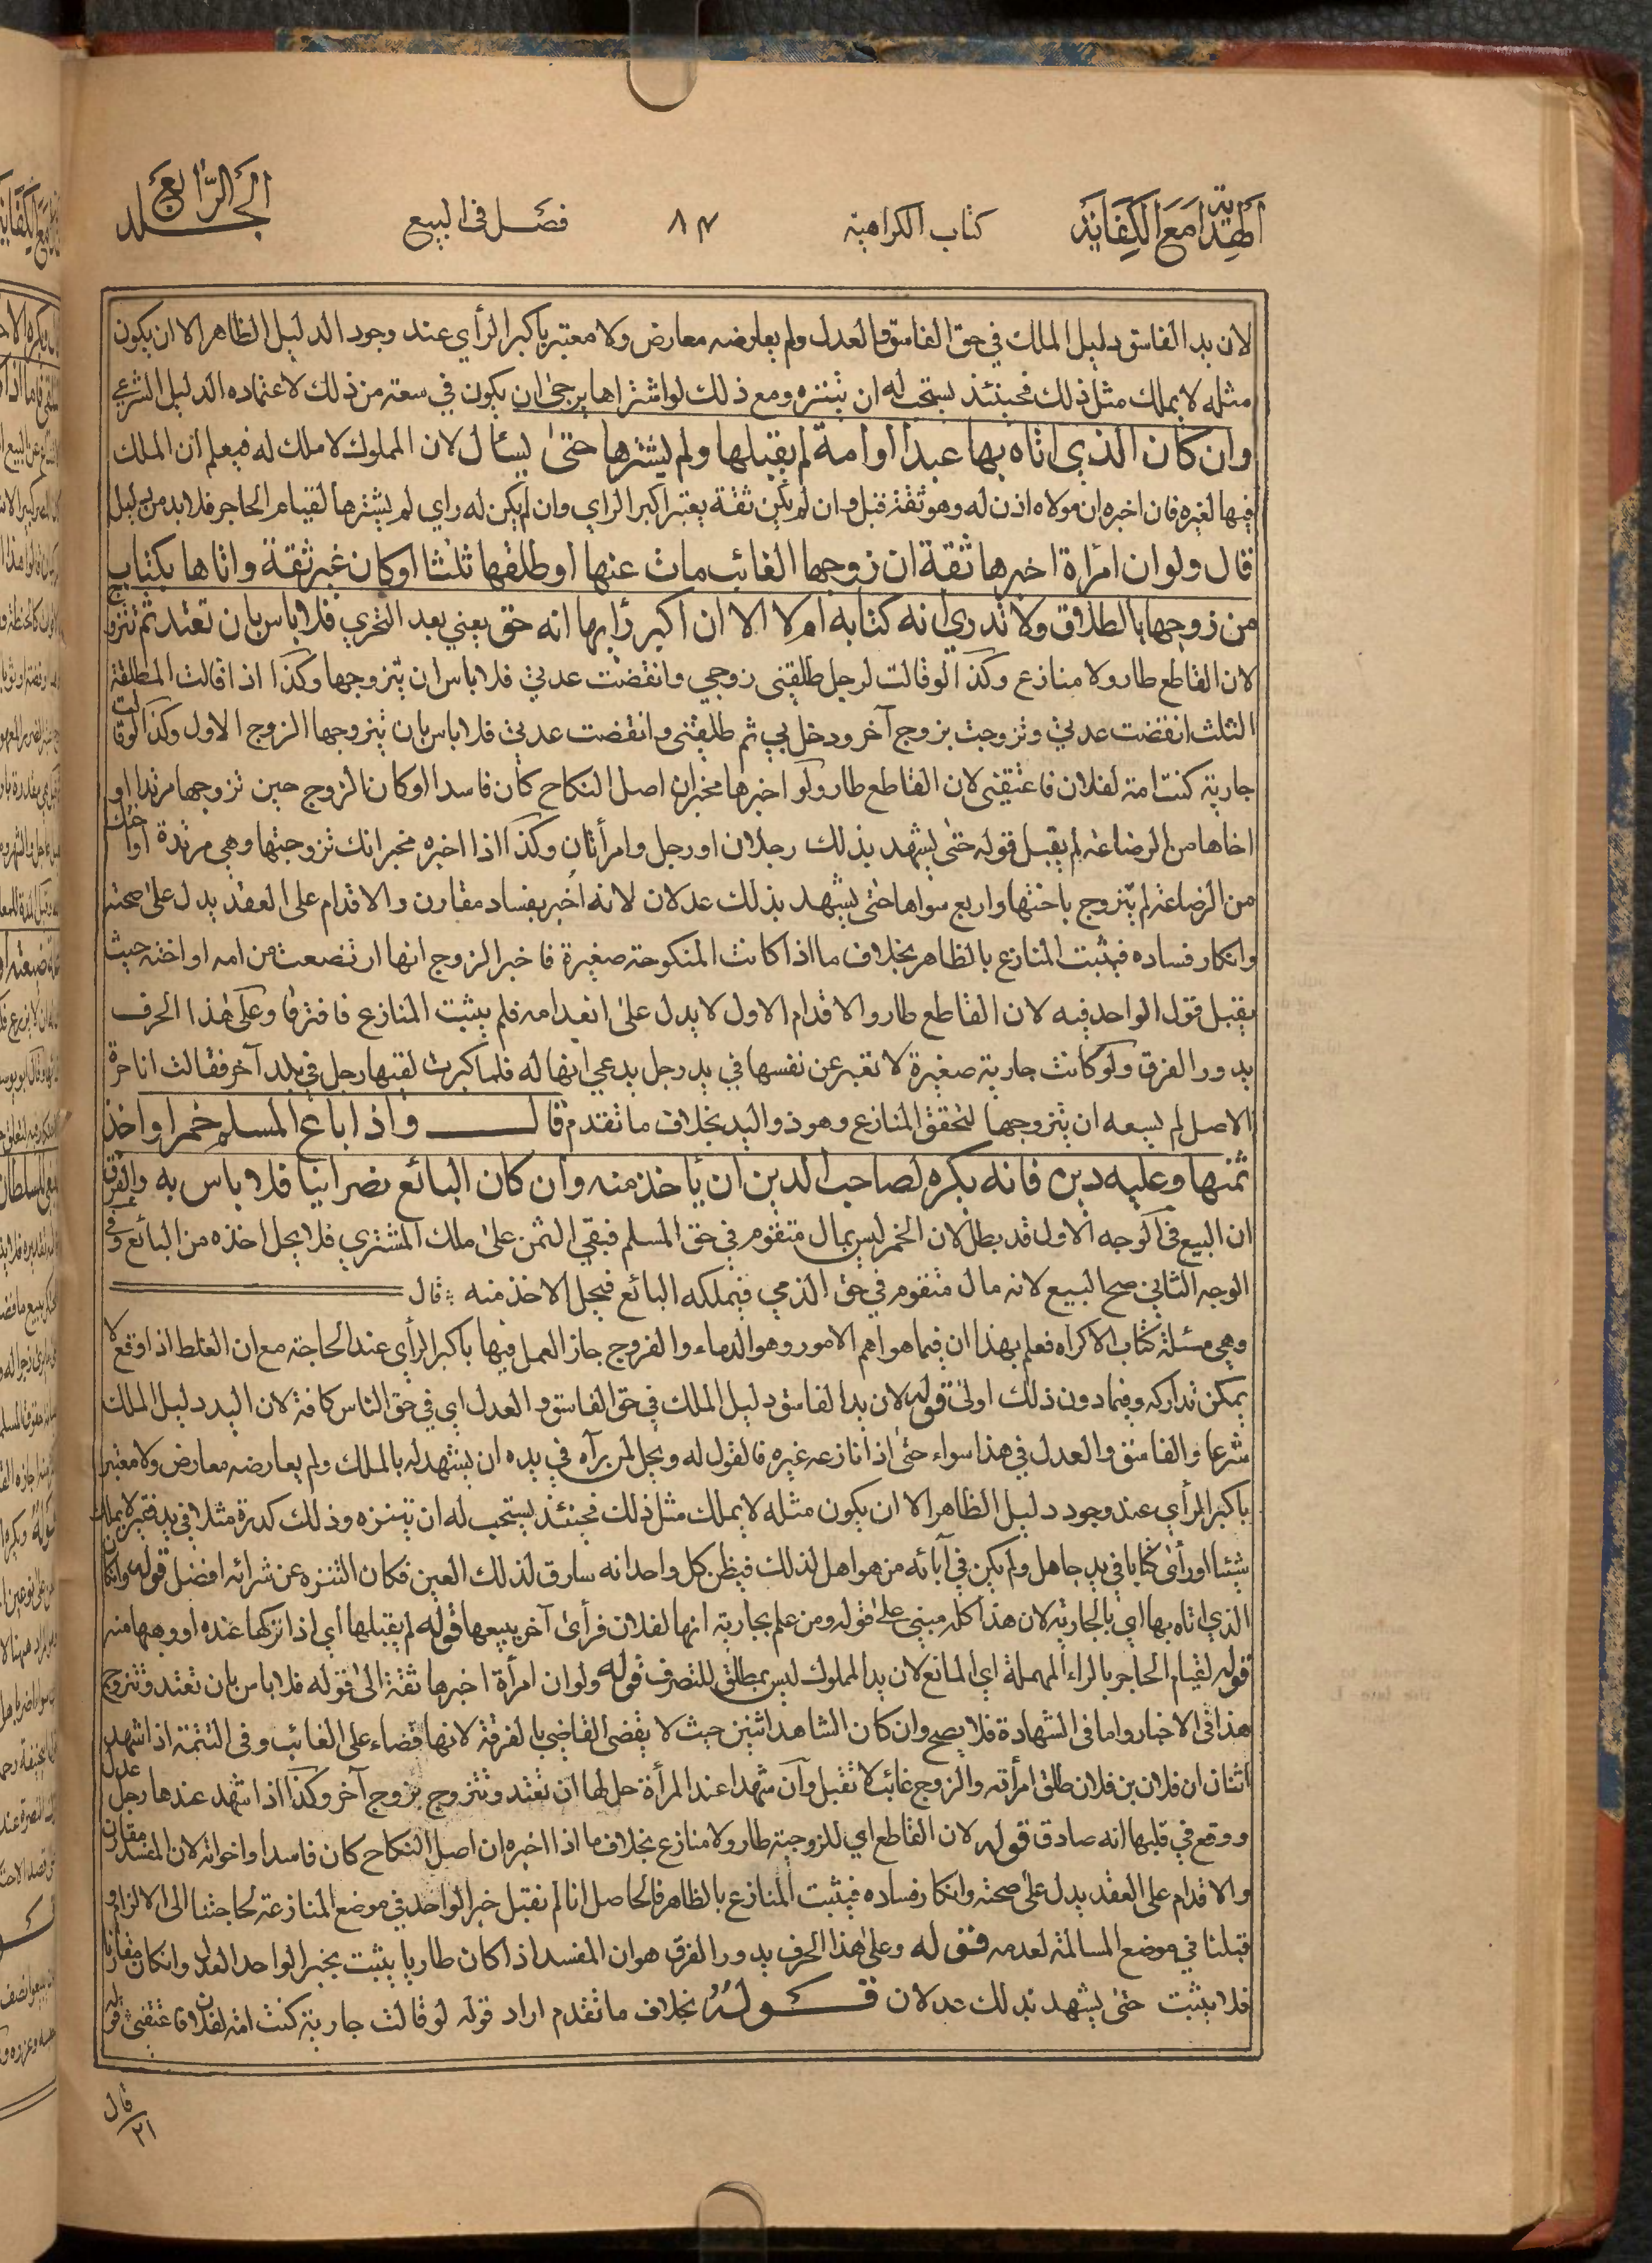 الهداية مع الكفاية
كتاب الكراهية
٨٣
فصل فى البيع
الجلد الرابع
لان يد الفاسق دليل الملك في حق الفاسق والعدل ولم يعارضه معارض ولا معتبر باكبر الرأي عند وجود الدليل الظاهر الا ان يكون
مثله لا يملك مثل ذلك فحينئذ يستحب له ان يتنزه ومع ذلك لو اشتراها يرجى ان يكون في سعة من ذلك لاعتماده الدليل الشرعي
وان كان الذي اتاه بها عبدا او امة لم يقبلها ولم يشترها حتى يسئال لان المملوك لا ملك له فيعلم ان الملك
فيها لغيره فان اخبره ان مولاه اذن له وهو ثقة قبل وان لم يكن ثقة يعتبر اكبر الراي وان لم يكن له راي لم يشترها لقيام الحاجر فلا بد من دليل
قال ولو ان امرأة اخبرها ثقة ان زوجها الغائب مات عنها او طلقها ثلثا او كان غير ثقة واتاها بكتاب
من زوجها بالطلاق ولا تدري انه كتابه ام لا الا ان اكبر رأيها انه حق يعني بعد التحري فلا باس بان تعتد ثم تتزوج
لان القاطع طار ولا منازع وكذا لو قالت لرجل طلقني زوجي وانقضت عدتي فلا باس ان يتزوجها وكذا اذا قالت المطلقة
الثلث انقضت عدتي وتزوجت بزوج آخر ودخل بي ثم طلقني وانقضت عدتي فلا باس بان يتزوجها الزوج الاول وكذا لو قالت
جارية كنت امة لفلان فاعتقني لان القاطع طار ولو اخبرها مخبر ان اصل النكاح كان فاسدا او كان الزوج حين تزوجها مرتدا او
اخاها من الرضاعة لم يقبل قوله حتى يشهد بذلك رجلان او رجل وامرأتان وكذا اذا اخبره مخبر انك تزوجتها وهي مرتدة او اختك
من الرضاعة لم يتزوج باختها واربع سواها حتى يشهد بذلك عدلان لانه اخبر بفساد مقارن والاقدام على العقد يدل على صحته
وانكار فساده فيثبت المنازع بالظاهر بخلاف ما اذا كانت المنكوحة صغيرة فاخبر الزوج انها ارتضعت من امه او اخته حيث
يقبل قول الواحد فيه لان القاطع طار والاقدام الاول لا يدل على انعدامه فلم يثبت المنازع فافترقا وعلى هذا الحرف
يدور الفرق ولو كانت جارية صغيرة لا تعبر عن نفسها في يد رجل يدعي انها له فلما كبرت لقيها رجل في بلد آخر فقالت انا حرة
الاصل لم يسعه ان يتزوجها لتحقق المنازع وهو ذو اليد بخلاف ما تقدم قال واذا باع المسلم خمرا واخذ
ثمنها وعليه دين فانه يكره لصاحب الدين ان يأخذ منه وان كان البائع نصرانيا فلا باس به والفرق
ان البيع في الوجه الاول قد بطل لان الخمر ليس بمال متقوم في حق المسلم فبقي الثمن على ملك المشتري فلا يحل اخذه من البائع وفي
الوجه الثاني صح البيع لانه مال متقوم في حق الذمي فيملكه البائع فيحل الاخذ منه قال
وهي مسئلة كتاب الاكراه فعلم بهذا ان فيما هو اهم الامور وهو الدماء والفروج جاز العمل فيها باكبر الرأي عند الحاجة مع ان الغلط اذا وقع لا
يمكن تداركه وفيما دون ذلك اولى قوله لان يد الفاسق دليل الملك في حق الفاسق والعدل اي في حق الناس كافة لان اليد دليل الملك
شرعا والفاسق والعدل في هذا سواء حتى اذا نازعه غيره فالقول له ويحل لمن يرآه في يده ان يشهد له بالملك ولم يعارضه معارض ولا معتبر
باكبر الرأي عند وجود دليل الظاهر الا ان يكون مثله لا يملك مثل ذلك فحينئذ يستحب له ان يتنزه وذلك كدرة مثلا في يد فقير لا يملك
شيئا او رأى كتابا في يد جاهل ولم يكن في آبائه من هو اهل لذلك فيظن كل واحد انه سارق لذلك العين فكان التنزه عن شرائه افضل قوله وان كان
الذي اتاه بها اي بالجارية لان هذا كله مبني على قوله ومن علم بجارية انها لفلان فرأى آخر يبيعها قوله لم يقبلها اي اذا تركها عنده او وهبها منه
قوله لقيام الحاجر بالراء المهملة اي المانع لان يد المملوك ليس بمطلق للتصرف قوله ولو ان امرأة اخبرها ثقة الى قوله فلا باس بان تعتد وتتزوج
هذا في الاخبار واما في الشهادة فلا يصح وان كان الشاهد اثنين حيث لا يقضى القاضي بالفرقة لانها قضاء على الغائب وفى التتمة اذا شهد
اثنان ان فلان بن فلان طلق امرأته والزوج غائب لا تقبل وآن شهدا عند المرأة حل لها ان تعتد وتتزوج بزوج آخر وكذا اذا شهد عندها رجل عدل
ووقع في قلبها انه صادق قوله لان القاطع اي للزوجية طار ولا منازع بخلاف ما اذا اخبره ان اصل النكاح كان فاسدا واخواته لان المفسد مقارن
والاقدام على العقد يدل على صحته وانكار فساده فيثبت المنازع بالظاهر فالحاصل انا لم نقبل خبر الواحد في موضع المنازعة لحاجتنا الى الالزام و
قبلنا في موضع المسالمة لعدمه قوله وعلى هذا الحرف يدور الفرق هو ان المفسد اذا كان طاريا يثبت بخبر الواحد العدل وان كان مقارنا
فلا يثبت حتى يشهد بذلك عدلان قوله بخلاف ما تقدم اراد قوله لو قالت جارية كنت امة لفلان فاعتقني قوله
قال
٢١